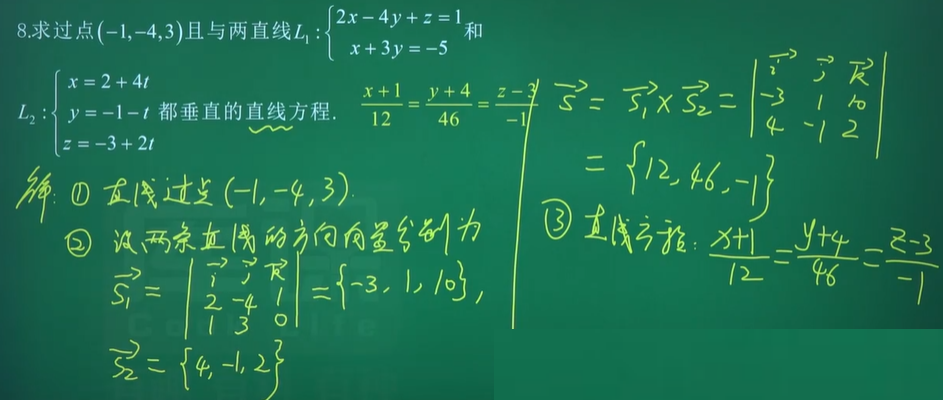 8.求过点(-1,-4,3)且与两直线L₁:{2x-4y+z=1
x+3y=-5 和
L₂:{x=2+4t
y=-1-t 都垂直的直线方程.
z=-3+2t
(x+1)/12=(y+4)/46=(z-3)/-1
解:① 直线过点(-1,-4,3).
② 设两条直线的方向向量分别为
s₁→=|i→ j→ k→
2 -4 1
1 3 0|={-3,1,10},
s₂→={4,-1,2}
s→=s₁→×s₂→=|i→ j→ k→
-3 1 10
4 -1 2|
={12,46,-1}
③ 直线方程:(x+1)/12=(y+4)/46=(z-3)/-1